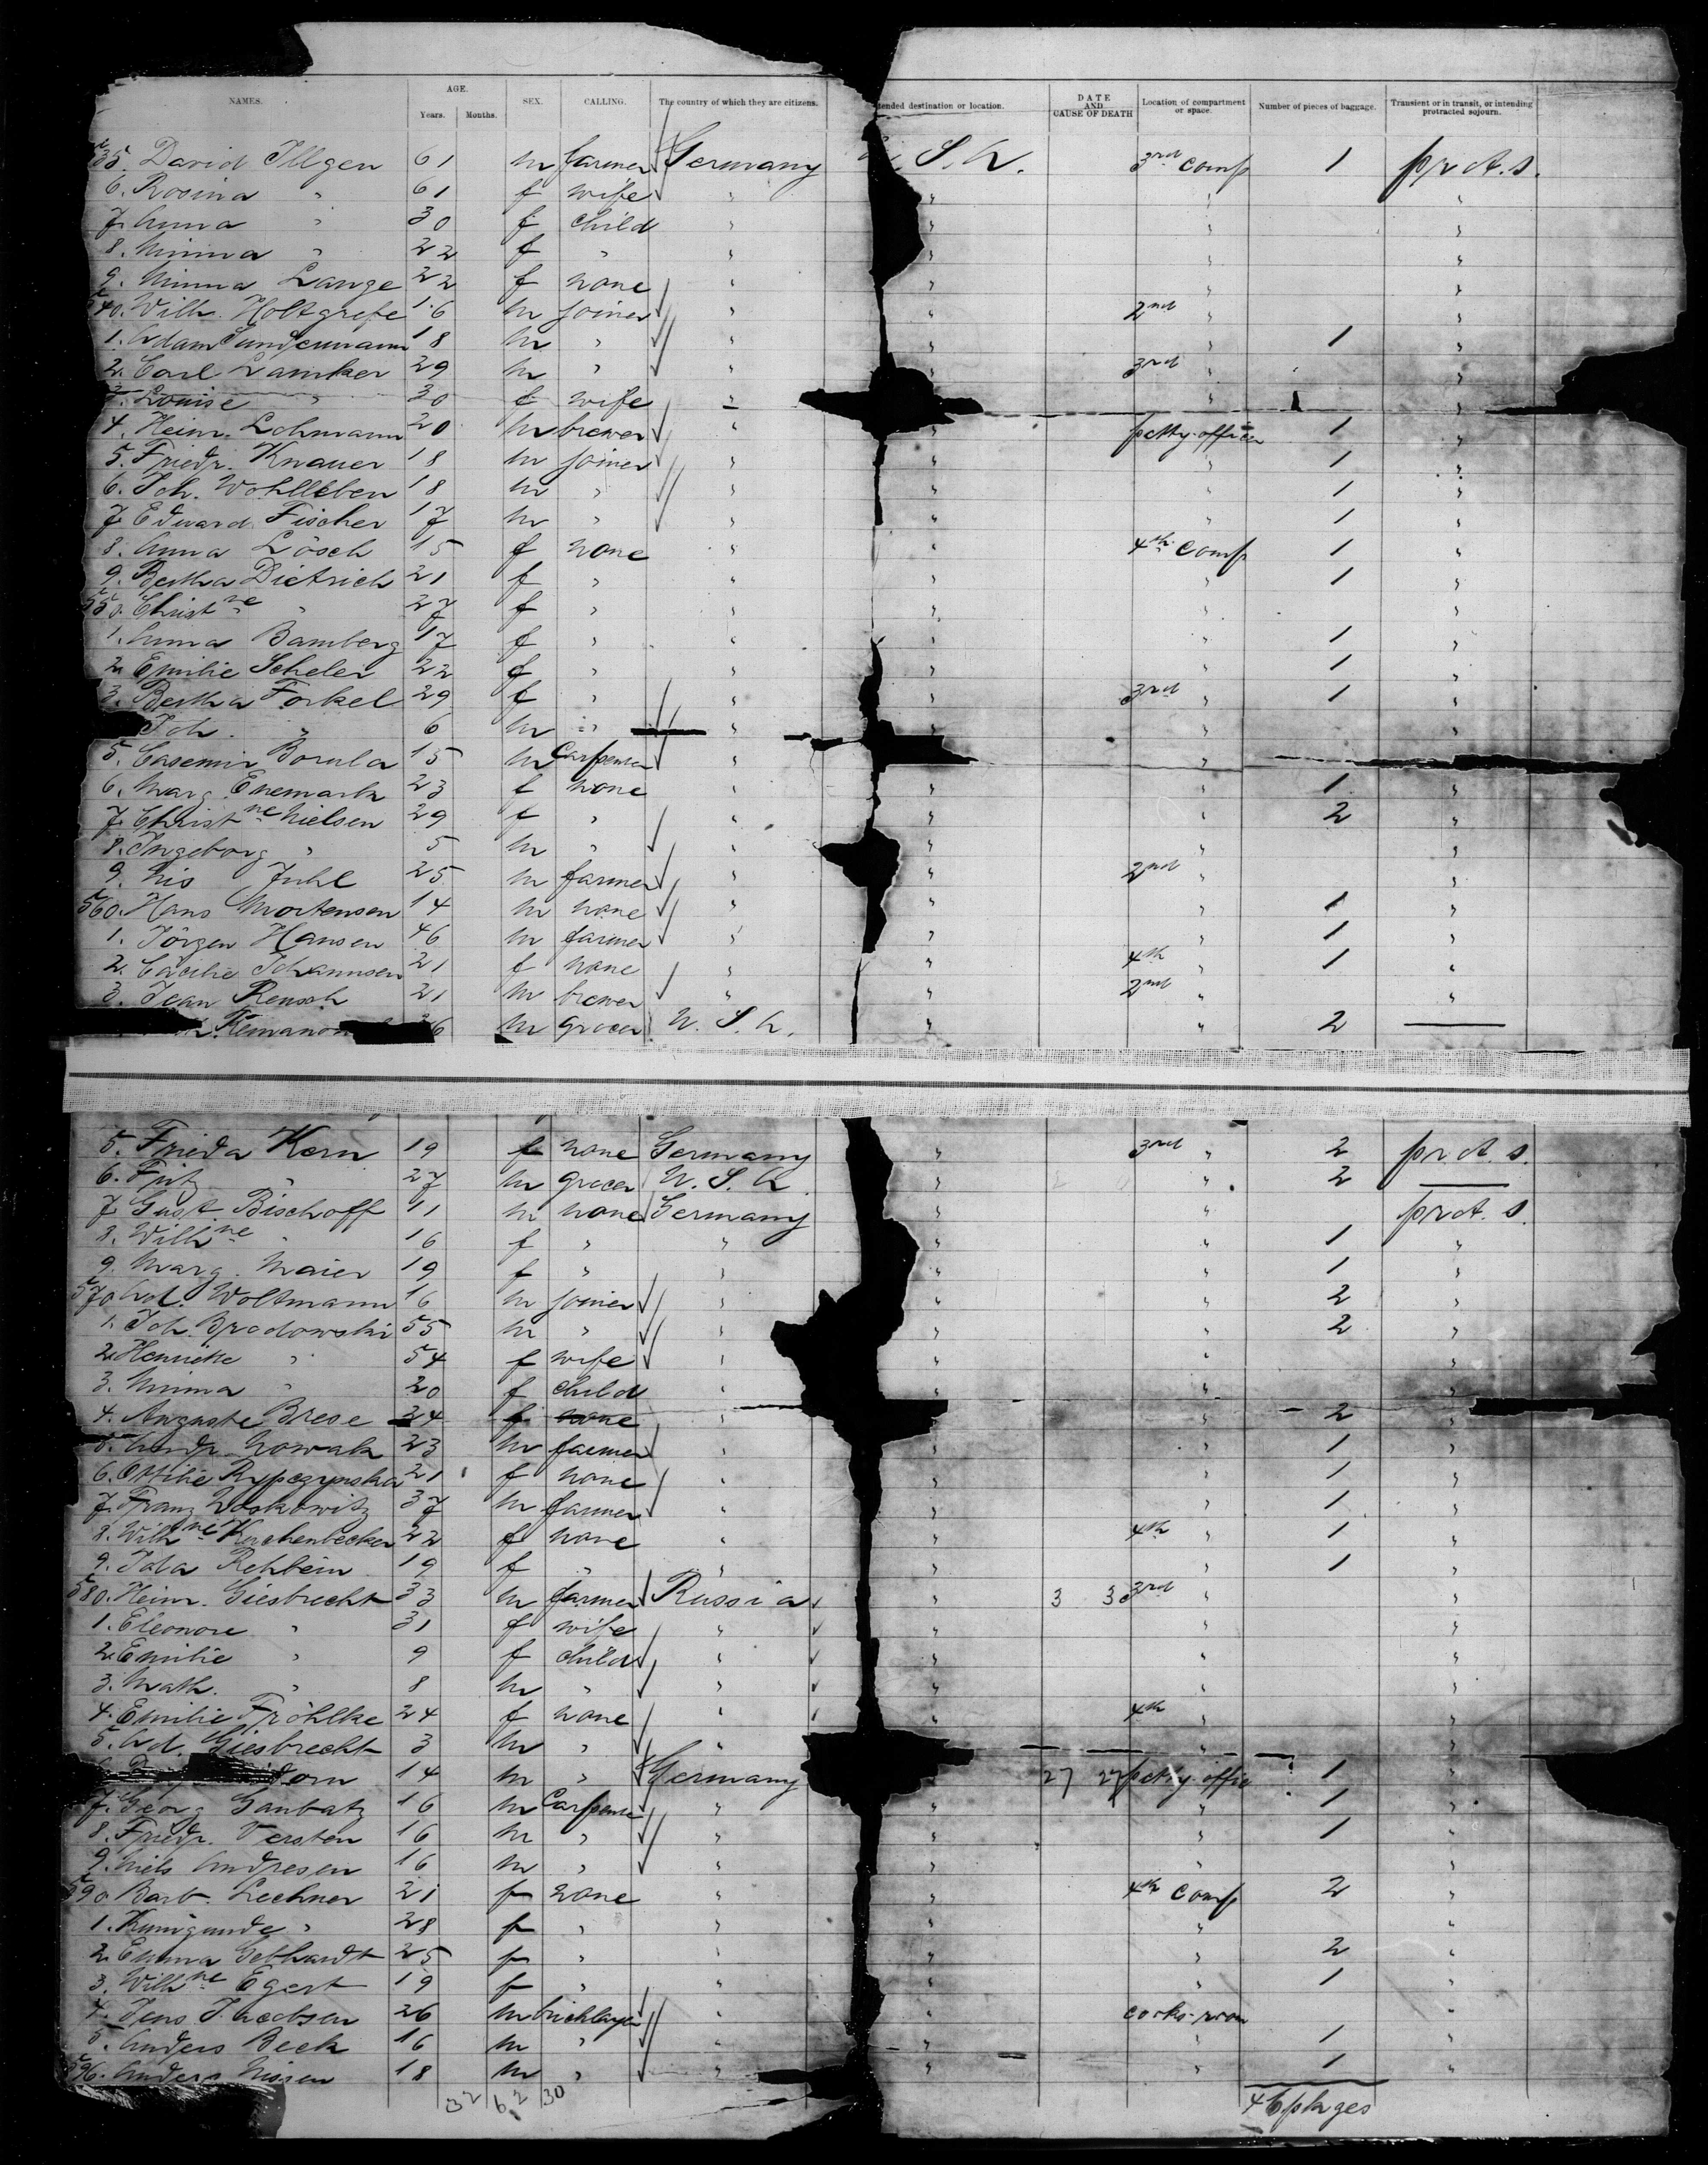 NAMES. AGE. Years. Months. SEX. CALLING. The country of which they are citizens. tended destination or location. DATE AND CAUSE OF DEATH Location of compartment or space. Number of pieces of baggage. Transient or in transit, or intending protracted sojourn.
535. David Illgen 61 m farmer Germany U. S. A. 3rd comp 1 prot. s.
6. Rosina " 61 f wife " " " "
7. Anna " 30 f child " " " "
8. Minna " 22 f " " " " "
9. Minna Lange 22 f none " " " "
540. Wilh. Holtgrefe 16 m joiner " " 2nd " "
1. Adam Sundermann 18 m " " " " 1 "
2. Carl Lamker 29 m " " " 3rd " "
3. Louise " 30 f wife " " " 1 "
4. Heinr. Lohmann 20 m brewer " " petty officer 1 "
5. Friedr. Knauer 18 m joiner " " " 1 "
6. Joh. Wohlleben 18 m " " " " 1 "
7. Edward Fischer 17 m " " " " 1 "
8. Anna Lösch 15 f none " " 4th comp 1 "
9. Bertha Dietrich 21 f " " " " 1 "
550. Christne " 27 f " " " " "
1. Anna Bamberg 17 f " " " " 1 "
2. Emilie Scheler 22 f " " " " 1 "
3. Bertha Forkel 29 f " " " 3rd " 1 "
Joh. " 6 m " " " "
5. Casemir Borula 15 m Carpenter " " "
6. Marg. Enemark 23 f none " " 1 "
7. Christne Nielsen 29 f " " " 2 "
8. Ingeborg " 5 m " " " "
9. Nis Juhl 25 m farmer " 2nd " "
560. Hans Mortensen 14 m none " " " 1 "
1. Jörgen Hansen 46 m farmer " " " 1 "
2. Cäcilie Johannsen 21 f none " " 4th " 1 "
3. Jean Rensch 21 m brewer " " 2nd " "
36 m grocer U. S. A. " " 2 —
5. Frieda Kern 19 f none Germany " 3rd " 2 prot. s.
6. Fritz " 27 m grocer U. S. A. " " 2 —
7. Gust. Bischoff 11 m none Germany " " prot. s.
8. Wilhne " 16 f " " " " 1 "
9. Marg. Maier 19 f " " " " 1 "
570. Ad. Woltmann 16 m joiner " " " 2 "
1. Joh. Brodowski 55 m " " " " 2 "
2. Henriette " 54 f wife " " " "
3. Minna " 20 f child " " " "
4. Auguste Brese 24 f none " " 2 "
5. Andr. Nowak 23 m farmer " " " 1 "
6. Ottilie Rypczynska 21 f none " " " 1 "
7. Franz Woskowitz 37 m farmer " " " 1 "
8. Wilhne Kuchenbecker 22 f none " " 4th " 1 "
9. Ida Rehbein 19 f " " " " 1 "
580. Heinr. Giesbrecht 33 m farmer Russia " 3 3 3rd " "
1. Eleonore " 31 f wife " " " "
2. Emilie " 9 f child " " " "
3. Math. " 8 m " " " " "
4. Emilie Fröhlke 24 f none " " 4th " "
5. Ad. Giesbrecht 3 m " " " "
dorn 14 m " Germany 27 27 petty offic 1 "
7. Georg Gaubatz 16 m Carpenter " " " 1 "
8. Friedr. Tersten 16 m " " " " 1 "
9. Niels Andresen 16 m " " " " "
590. Barb. Lechner 21 f none " " 4th comp 2 "
1. Kunigunde " 28 f " " " " "
2. Emma Gebhardt 25 f " " " " 2 "
3. Wilhne Egert 19 f " " " " 1 "
4. Jens Jacobsen 26 m bricklayer " " cooks-room "
5. Anders Beck 16 m " " " " 1 "
596. Anders Nissen 18 m " " " " 1 "
32 62 30 46 pkges